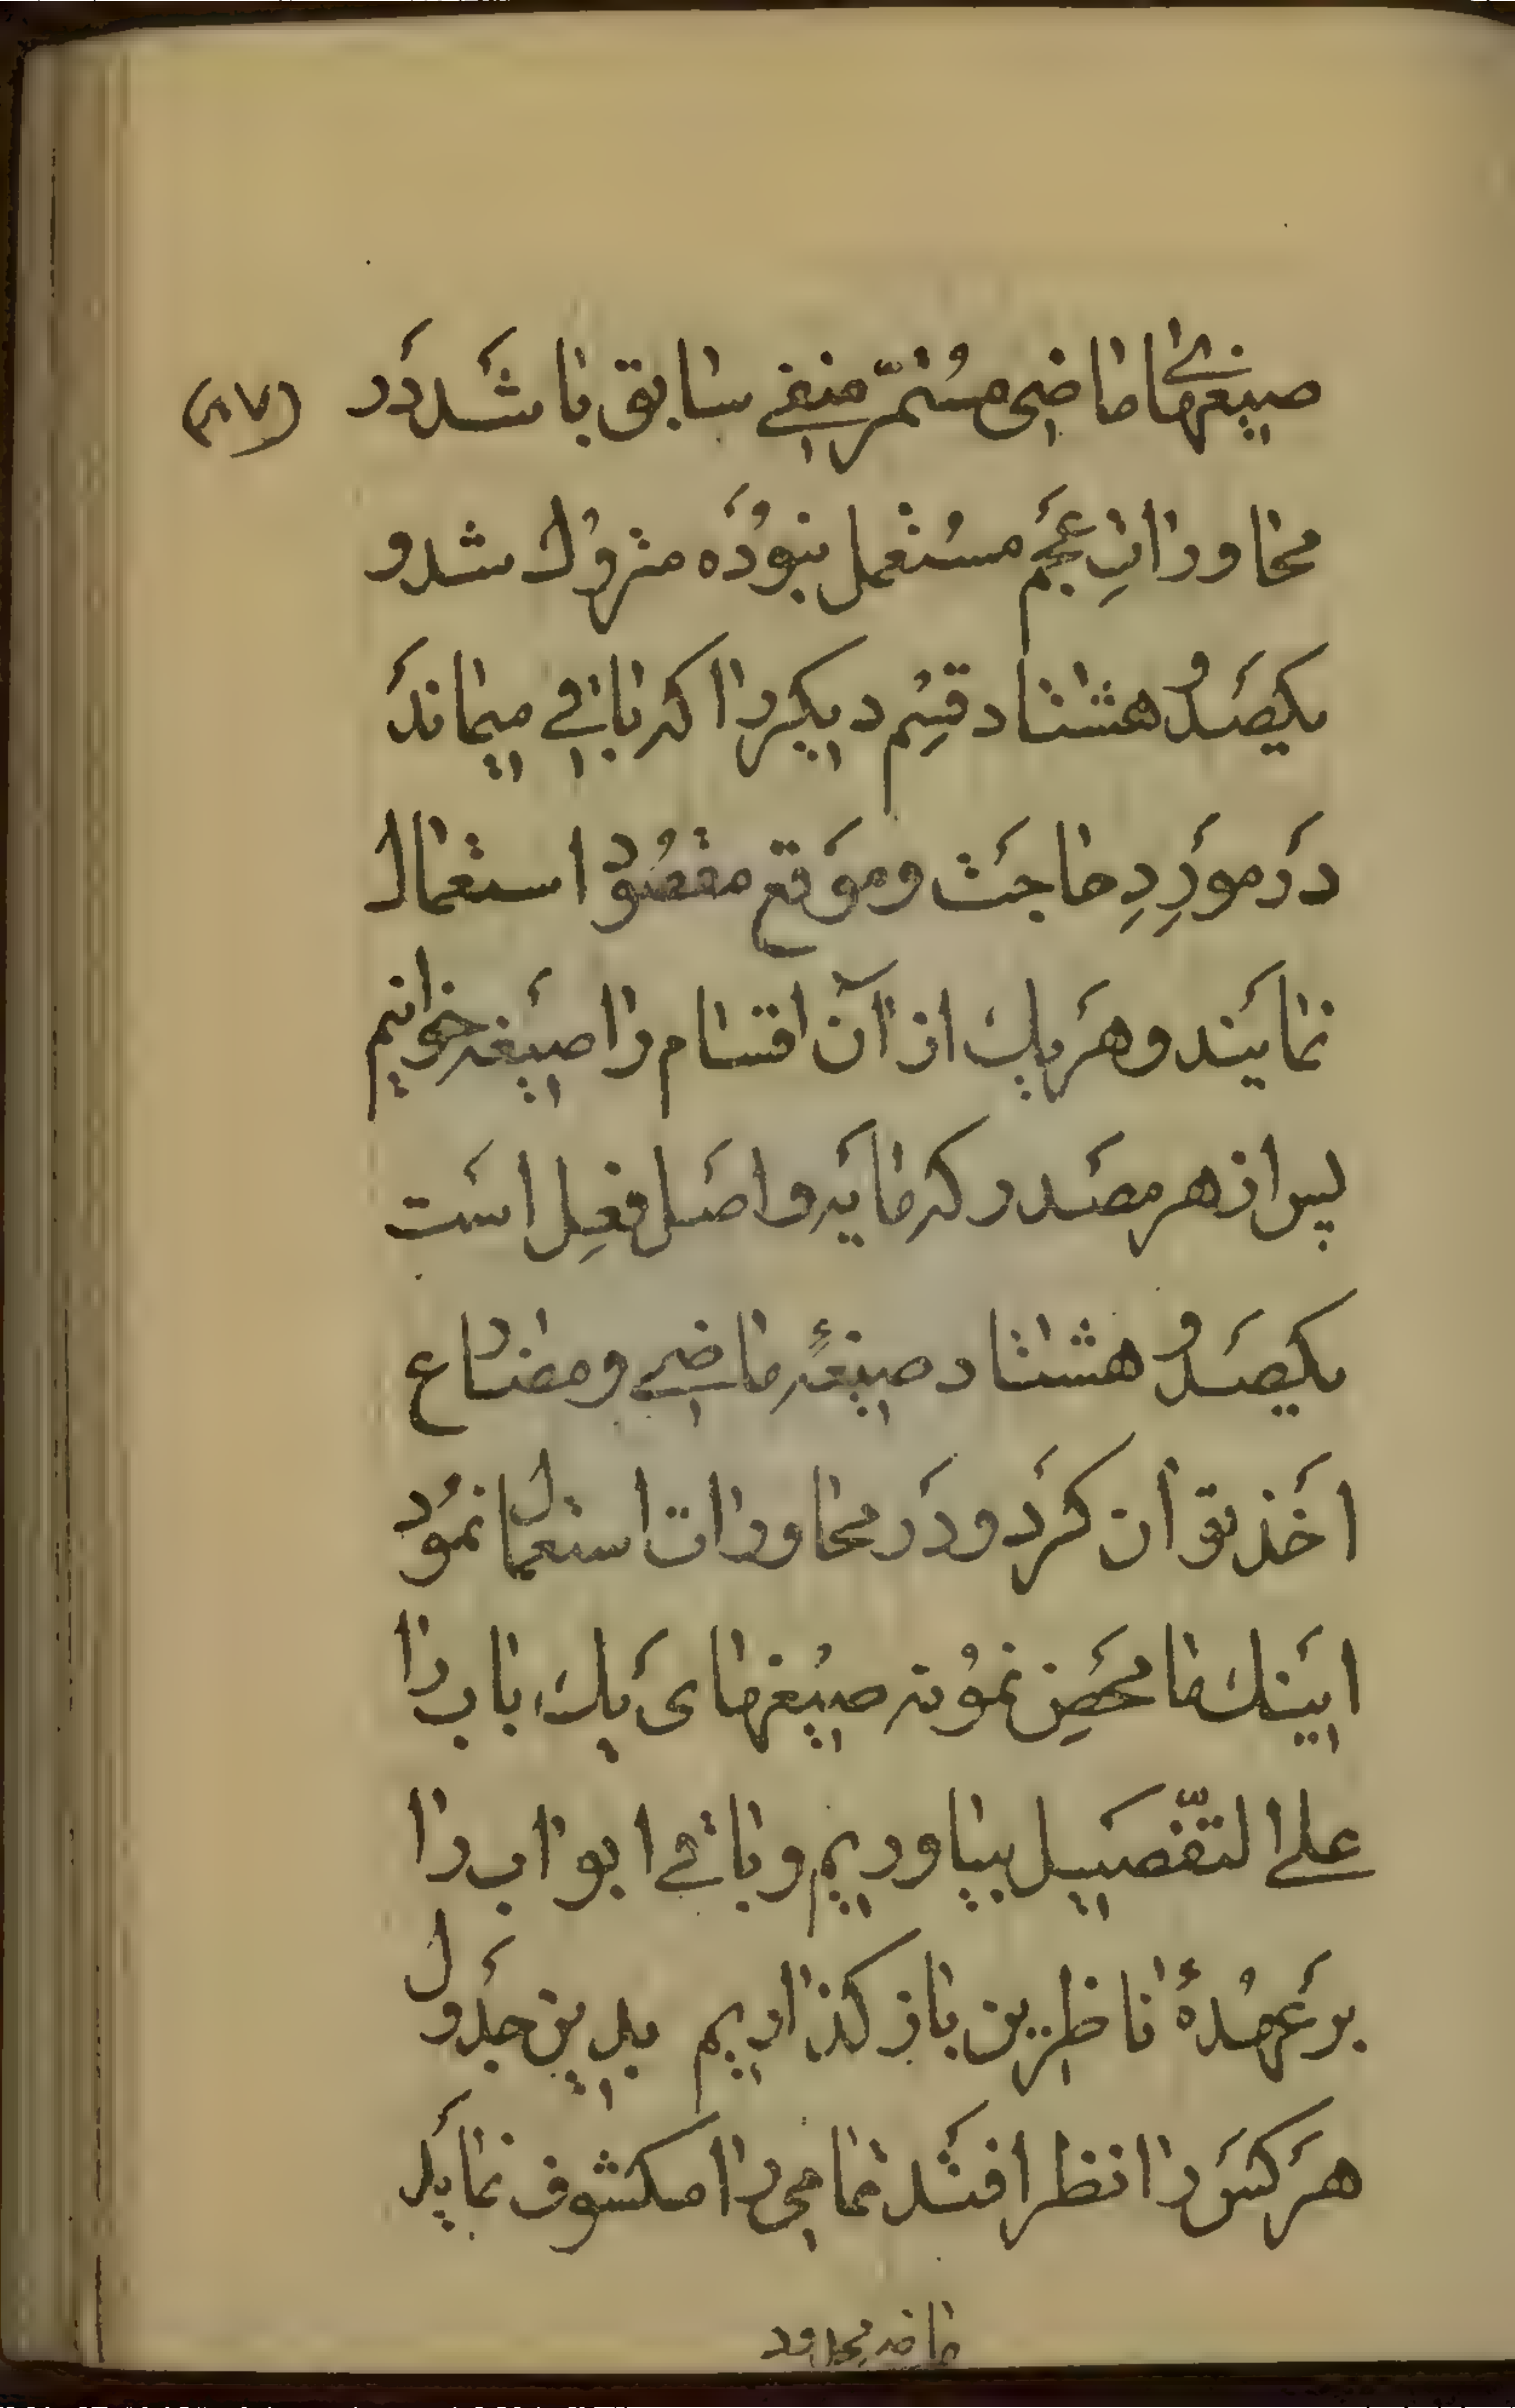 صیغهای ماضی مُستمرّ منفی سابق باشَد دَر
محاوراتِ عَجَم مسُتعمل نبوُدَه متروُك شد و
یکصَدُو هشتاد قسِم دیگر را که باقی میماندَ
دَر مورِدِ حاجَت و موَقع مقصُود استعمال
نمایَند و هَر یك از آن اقسام را صیَغه خوانیم
پس از هر مصَدر که مایَه و اصَل فعِل اسَت
یکصَدُو هشتاد صیغهٔ ماضی و مضارع
اخَذ توان کرَد و دَر محاورات استعمال نموُد
اینَك ما محَضِ نموُنه صیغهای یَك باب را
علی التّفصَیل بیاوریم و باقی ابواب را
برعَهُدهٔ ناظرین باز گذاریم بدین جدَول
هَر کسَ را نظر افتَد تمامی را مکشوف نمایَد